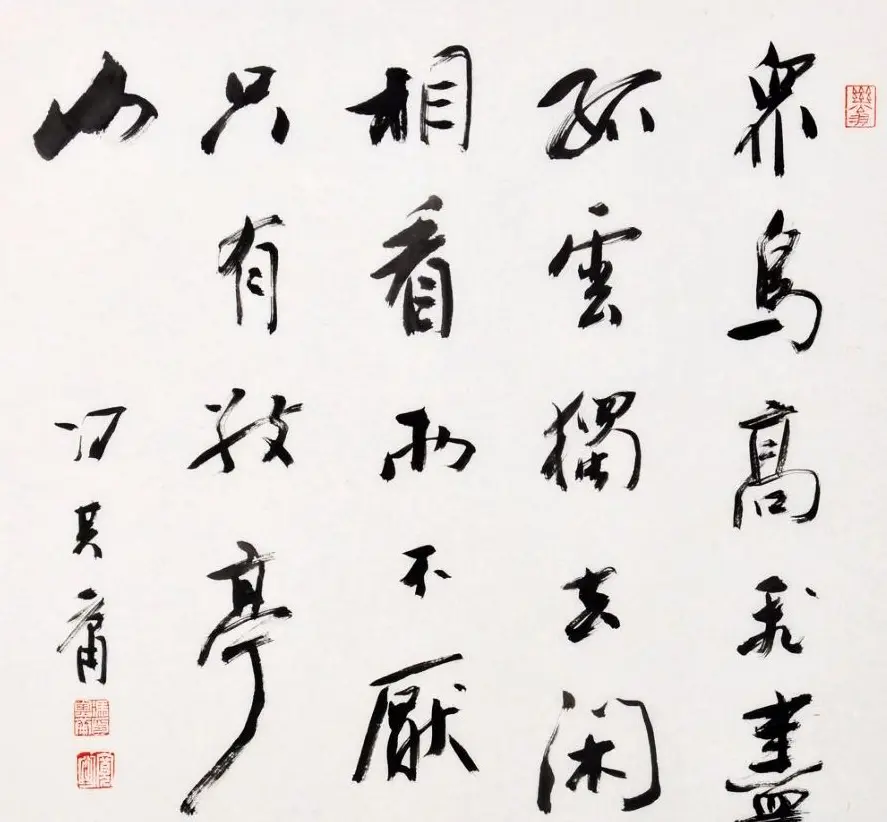 眾鳥高飛盡
孤雲獨去閑
相看兩不厭
只有敬亭
山
馮其庸